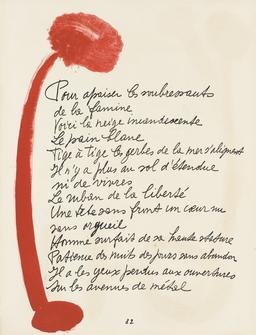 Pour apaiser les soubressauts
de la famine
Voici la neige incandescente
Le pain blanc
Tige à tige les gerbes de la mer s'alignent
Il n'y a plus au sol d'étendue
ni de vivres
Le ruban de la liberté
Une tête sans front un cœur nu
sans orgueil
Homme surfait de sa haute stature
Patience des nuits des jours sans abandon
Il a les yeux perdus aux ouvertures
Sur les avenues de métal
82